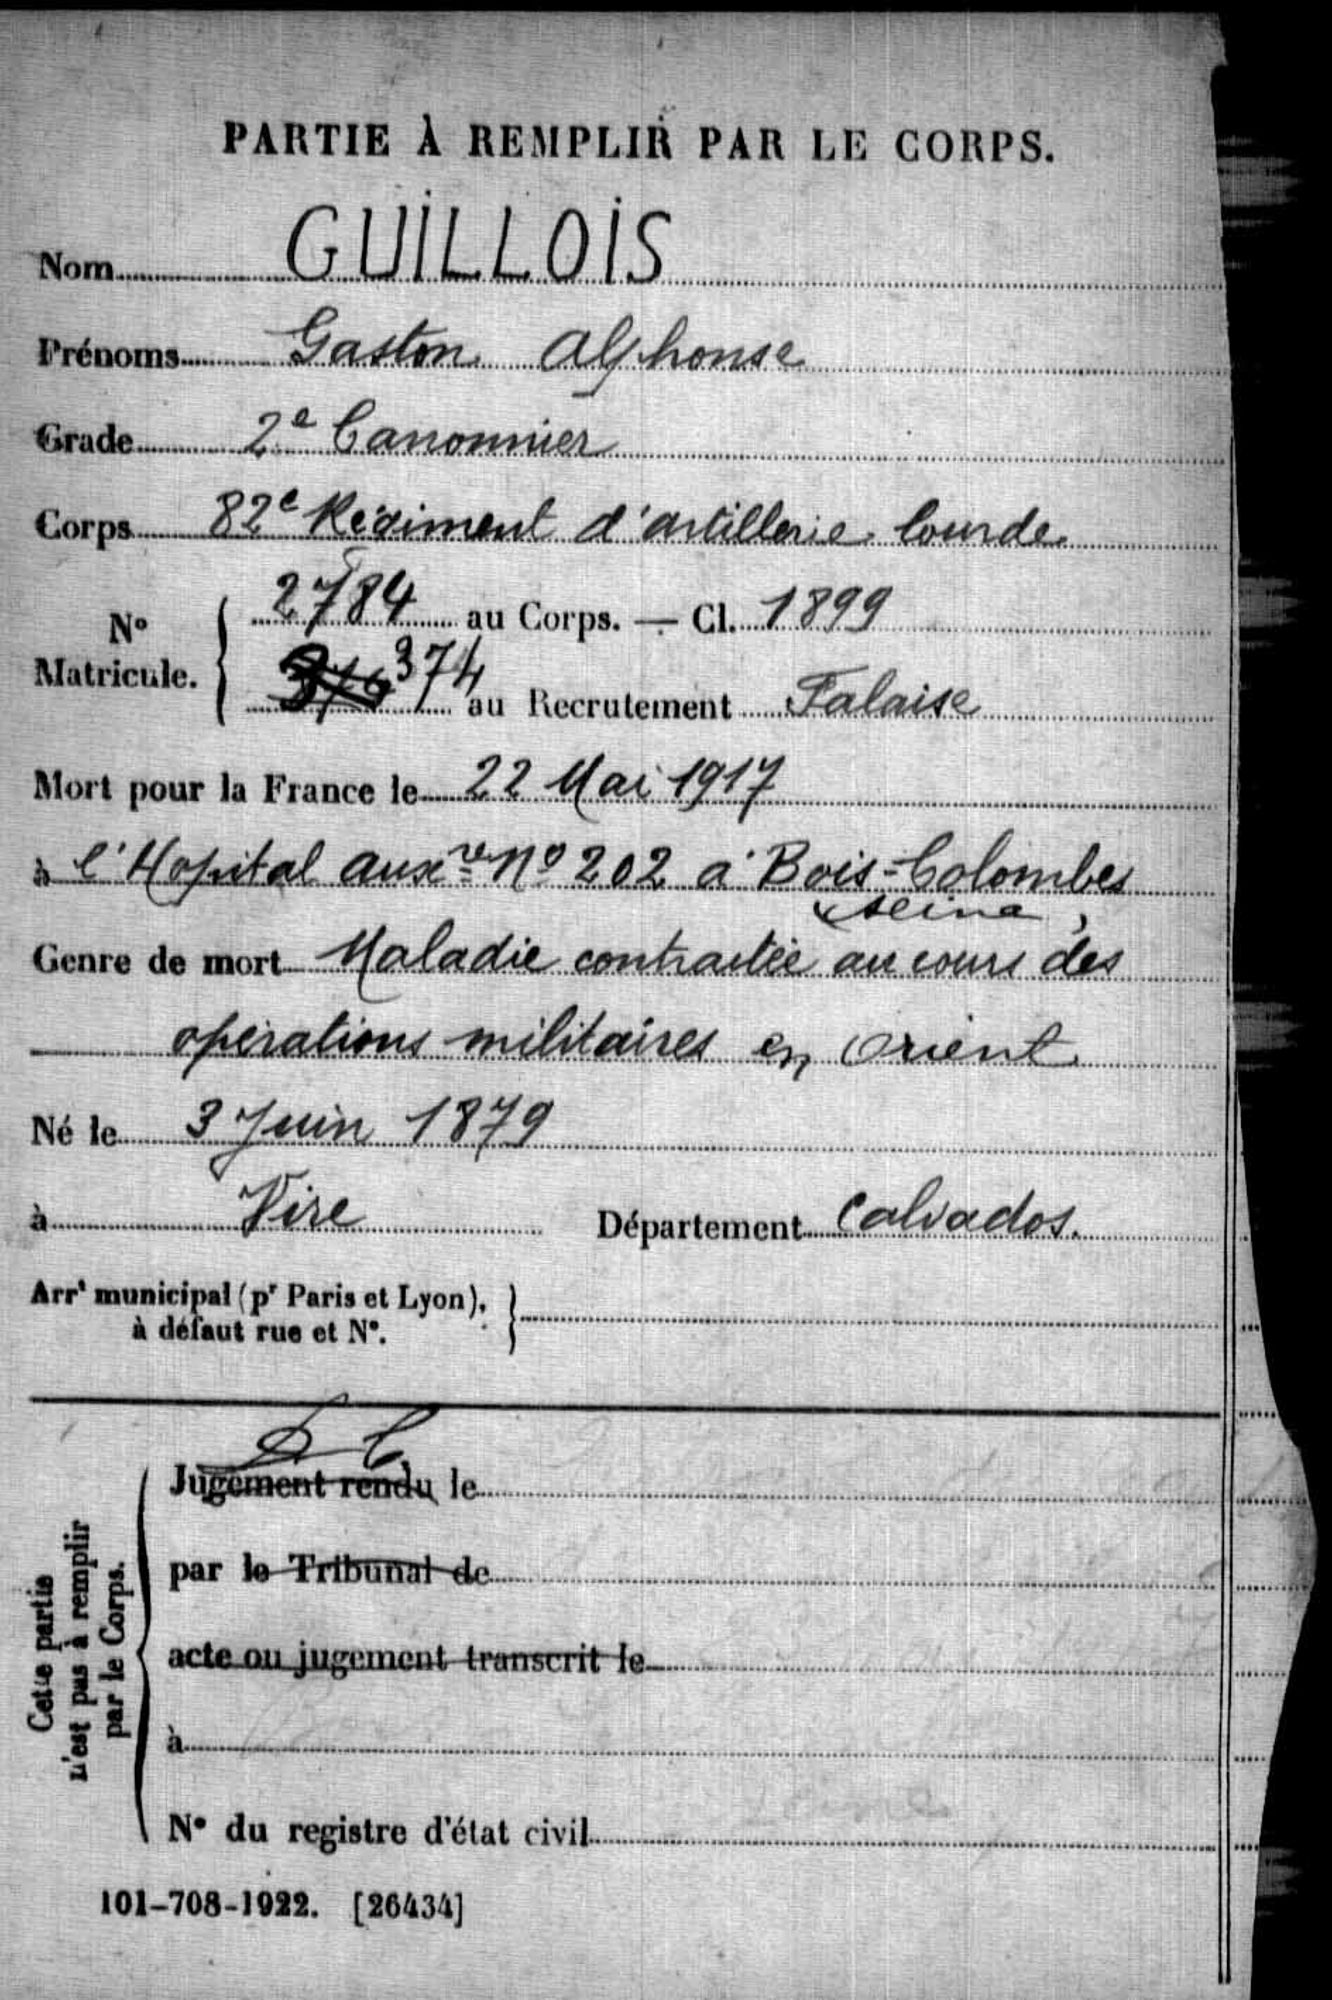 PARTIE À REMPLIR PAR LE CORPS.
Nom GUILLOIS
Prénoms Gaston Alphonse
Grade 2e Canonnier
Corps 82e Régiment d'artillerie lourde
No Matricule. 2784 au Corps. — Cl. 1899
374 au Recrutement Falaise
Mort pour la France le 22 Mai 1917
à l'Hopital auxre No 202 à Bois-Colombes
Seine
Genre de mort Maladie contractée au cours des
opérations militaires en Orient
Né le 3 Juin 1879
à Vire Département Calvados.
Arrt municipal (pr Paris et Lyon),
à défaut rue et No.
Cette partie
n'est pas à remplir
par le Corps.
Jugement rendu le
par le Tribunal de
acte ou jugement transcrit le
à
No du registre d'état civil
101-708-1922. [26434]